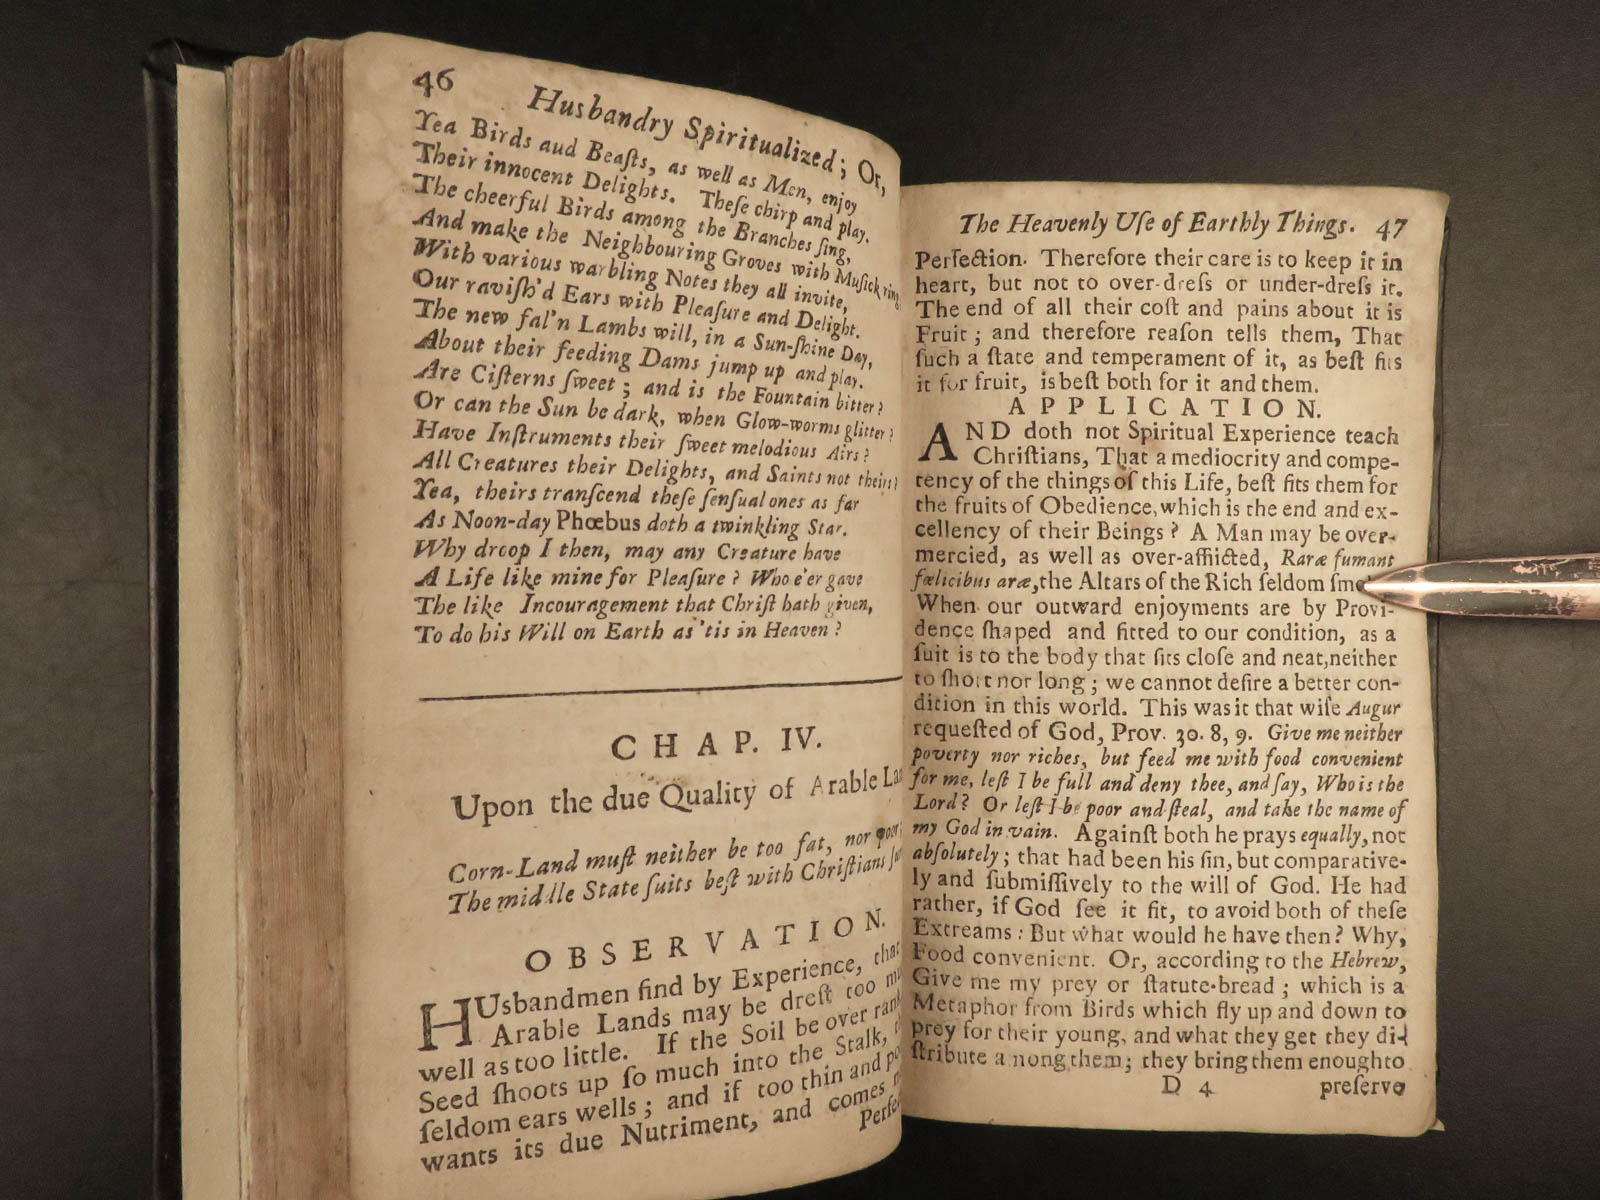 46 Husbandry Spiritualized; Or,
Yea Birds aud Beaſts, as well as Men, enjoy
Their innocent Delights. Theſe chirp and play.
The cheerful Birds among the Branches ſing,
And make the Neighbouring Groves with Muſick ring
With various warbling Notes they all invite,
Our raviſh'd Ears with Pleaſure and Delight.
The new fal'n Lambs will, in a Sun-ſhine Day,
About their feeding Dams jump up and play.
Are Ciſterns ſweet; and is the Fountain bitter?
Or can the Sun be dark, when Glow-worms glitter?
Have Inſtruments their ſweet melodious Airs?
All Creatures their Delights, and Saints not theirs?
Yea, theirs tranſcend theſe ſenſual ones as far
As Noon-day Phœbus doth a twinkling Star.
Why droop I then, may any Creature have
A Life like mine for Pleaſure? Who e'er gave
The like Incouragement that Chriſt hath given,
To do his Will on Earth as 'tis in Heaven?
CHAP. IV.
Upon the due Quality of Arable
Corn-Land muſt neither be too fat, nor poor
The middle State ſuits beſt with Chriſtians
OBSERVATION.
HUsbandmen find by Experience, that
Arable Lands may be dreſt too
well as too little. If the Soil be over rank
Seed ſhoots up ſo much into the Stalk,
ſeldom ears wells; and if too thin and
wants its due Nutriment, and comes

The Heavenly Uſe of Earthly Things. 47
Perfection. Therefore their care is to keep it in
heart, but not to over-dreſs or under-dreſs it.
The end of all their coſt and pains about it is
Fruit; and therefore reaſon tells them, That
ſuch a ſtate and temperament of it, as beſt fits
it for fruit, is beſt both for it and them.
APPLICATION.
AND doth not Spiritual Experience teach
Chriſtians, That a mediocrity and compe-
tency of the things of this Life, beſt fits them for
the fruits of Obedience, which is the end and ex-
cellency of their Beings? A Man may be over-
mercied, as well as over-afflicted, Raræ fumant
fœlicibus aræ, the Altars of the Rich ſeldom
When our outward enjoyments are by Provi-
dence ſhaped and fitted to our condition, as a
ſuit is to the body that ſits cloſe and neat, neither
to ſhort nor long; we cannot deſire a better con-
dition in this world. This was it that wiſe Augur
requeſted of God, Prov. 30. 8, 9. Give me neither
poverty nor riches, but feed me with food convenient
for me, leſt I be full and deny thee, and ſay, Who is the
Lord? Or leſt I be poor and ſteal, and take the name of
my God in vain. Againſt both he prays equally, not
abſolutely; that had been his ſin, but comparative-
ly and ſubmiſſively to the will of God. He had
rather, if God ſee it fit, to avoid both of theſe
Extreams: But what would he have then? Why,
Food convenient. Or, according to the Hebrew,
Give me my prey or ſtatute-bread; which is a
Metaphor from Birds which fly up and down to
prey for their young, and what they get they di-
ſtribute among them; they bring them enough to
D 4 preſerve